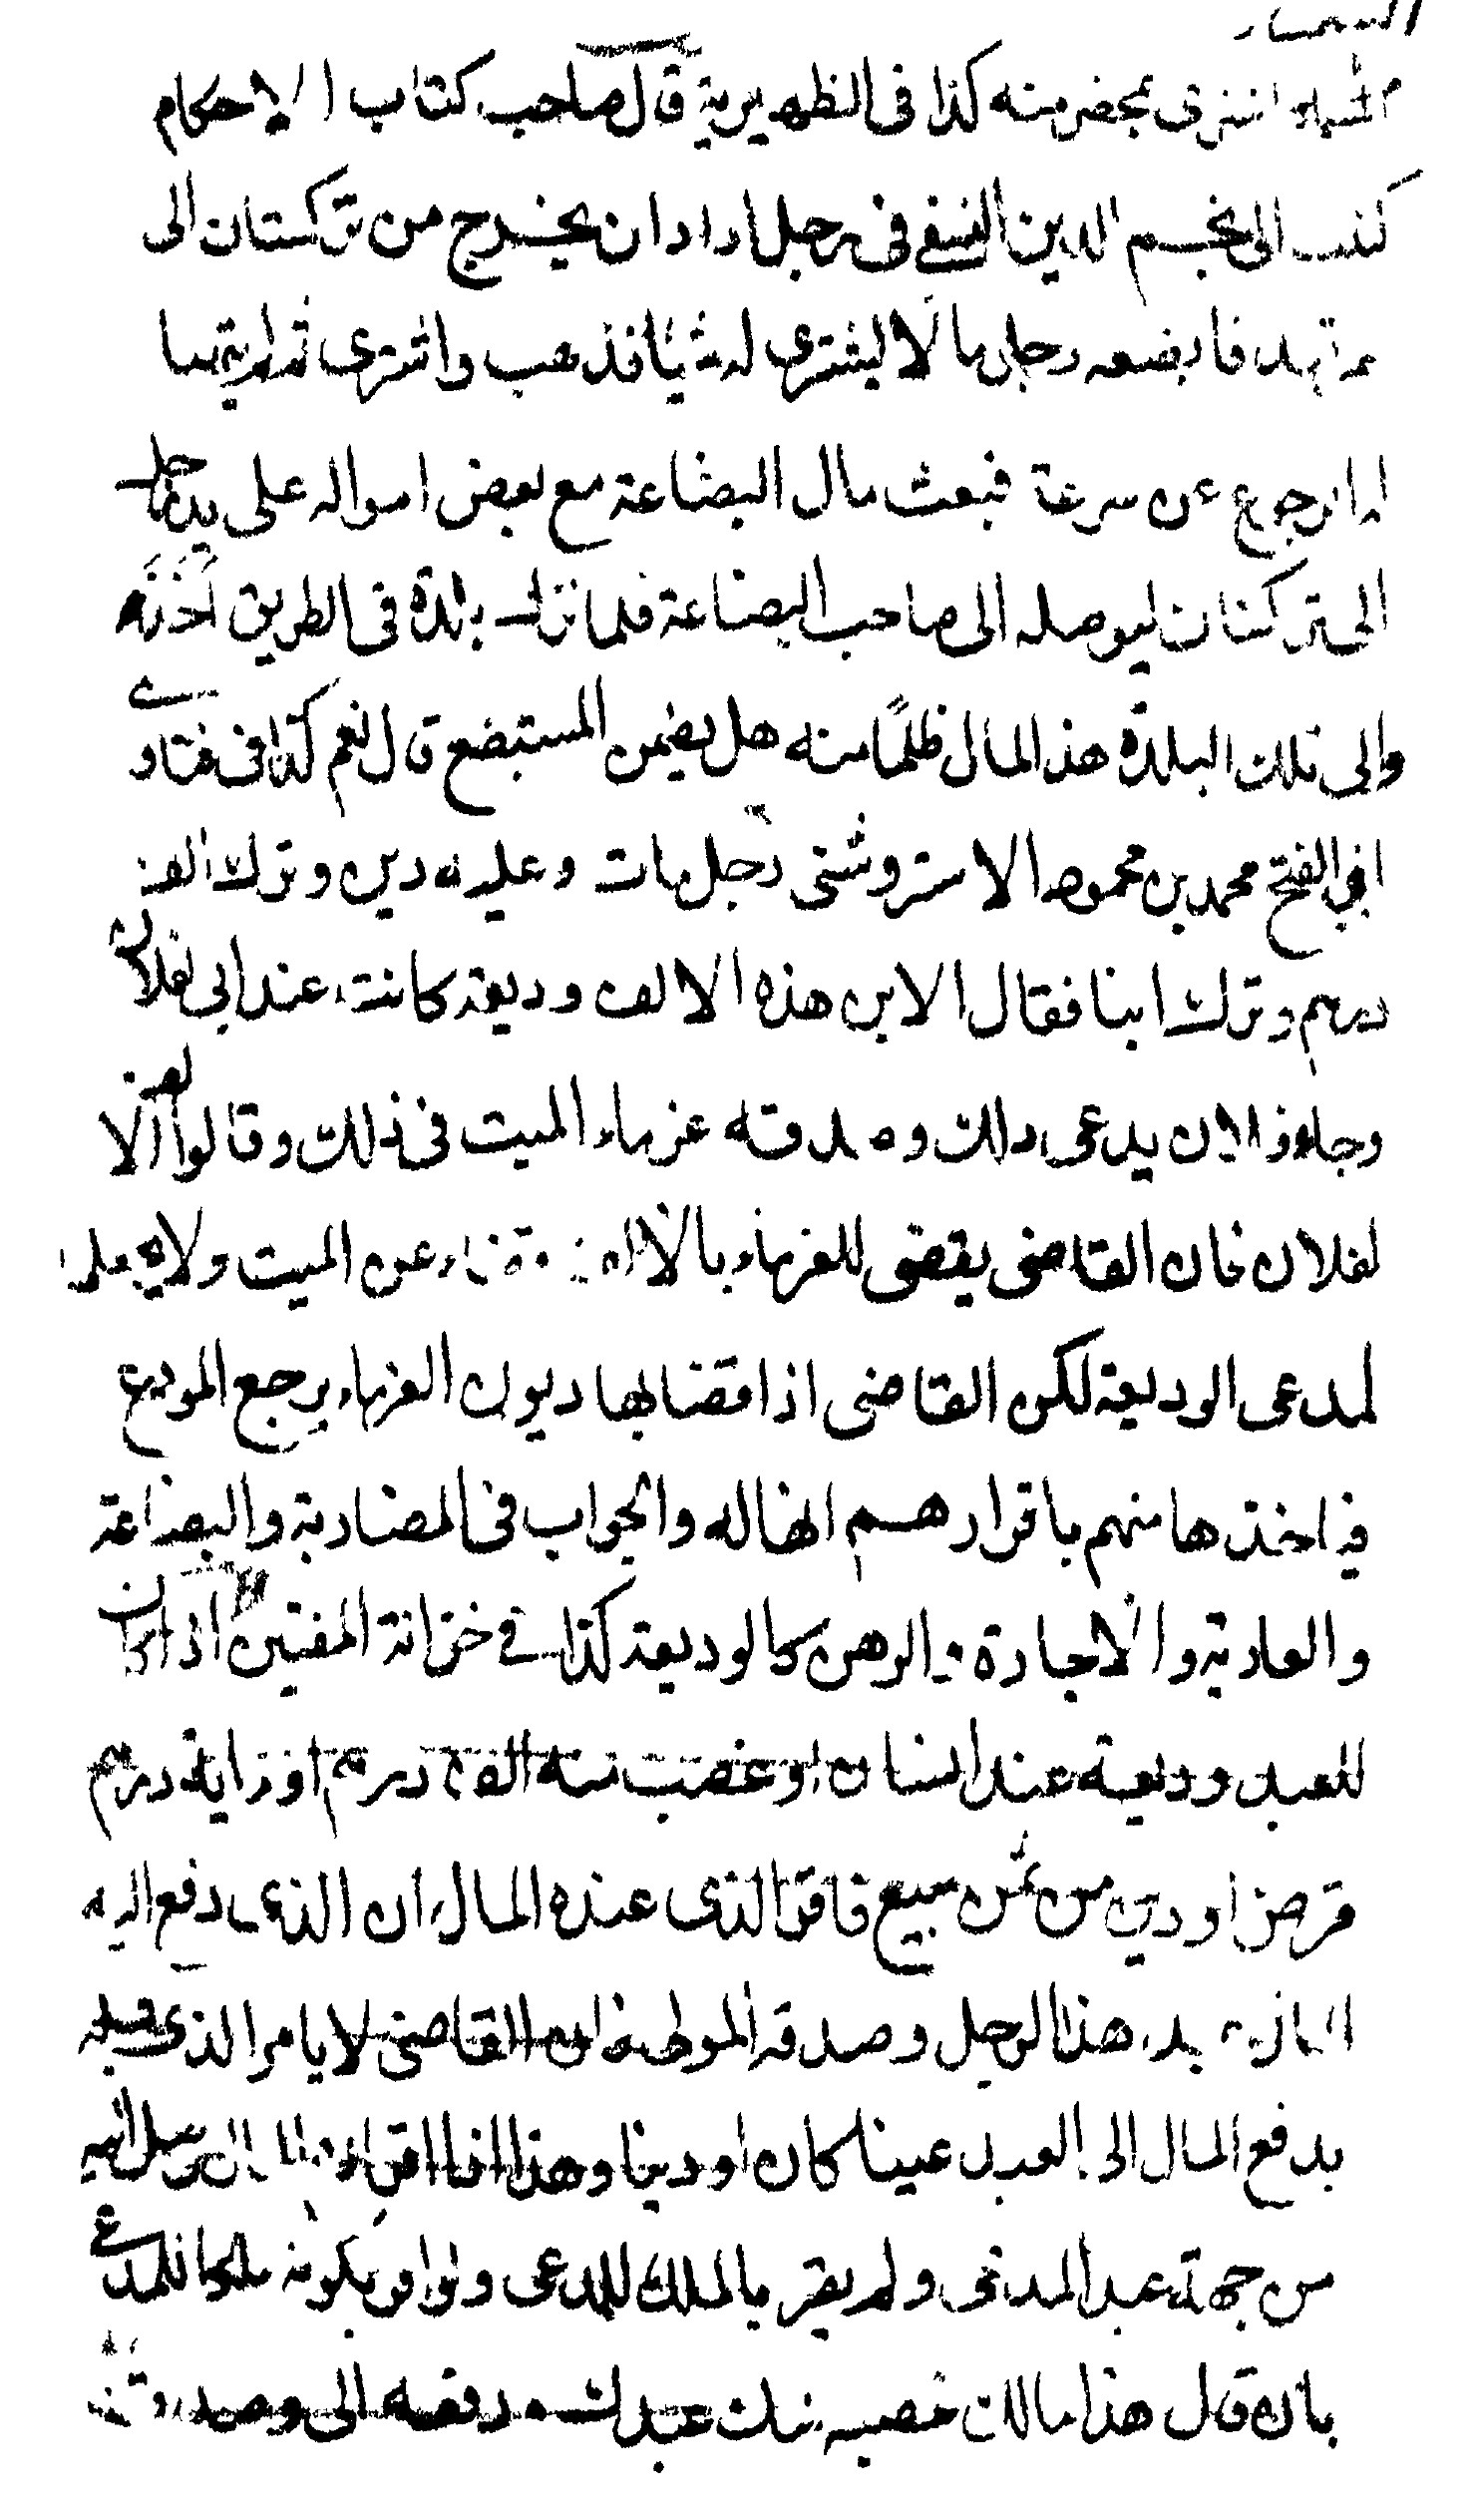 المشتري بمحضر منه كذا في الظهيرية قال صاحب كتاب الاحكام
كتب الى نجم الدين النسفي في رجل اراد ان يخرج من تركستان الى
سمرقند فابضعه رجل مالا ليشتري له شيئا فذهب واشترى ثم لم يتهيأ
له الرجوع عن سرعة فبعث مال البضاعة مع بعض امواله على يد رجل
الى تركستان ليوصله الى صاحب البضاعة فلما نزل بلدة في الطريق اخذ
والى تلك البلدة هذا المال ظلمًا منه هل يضمن المستبضع قال نعم كذا في فتاوى
ابي الفتح محمد بن محمود الاستروشني رجل مات وعليه دين وترك الف
درهم وترك ابنا فقال الابن هذه الالف وديعة كانت عند ابي لفلان
وجاء فلان يدعي ذلك وصدقه غرماء الميت في ذلك وقالوا الالف
لفلان فان القاضي يقضي للغرماء بالالف قضاء عن الميت ولا يجعلها
لمدعى الوديعة لكن القاضي اذا قضا بها ديون الغرماء يرجع المودع
فياخذها منهم باقرارهم انها له والجواب في المضاربة والبضاعة
والعارية والاجارة والرهن كالوديعة كذا في خزانة المفتين اذا كان
للعبد وديعة عند انسان او غصب منه الف درهم او له اية درهم
قرض او دين من ثمن مبيع فاقر الذى عنده المال ان الذى دفع اليه
المال عبد هذا الرجل وصدقه المولى فان القاضي لا يامر الذى قبله
بدفع المال الى العبد عينا كان او دينا وهذا انما اقر المال وصل اليه
من جهة عبد المدعي ولم يقر بالملك للمدعى ولو اقر بكونه ملكا للمدعي
بان قال هذا مالك غصبه منك عبدك ودفعه الى وصدقه